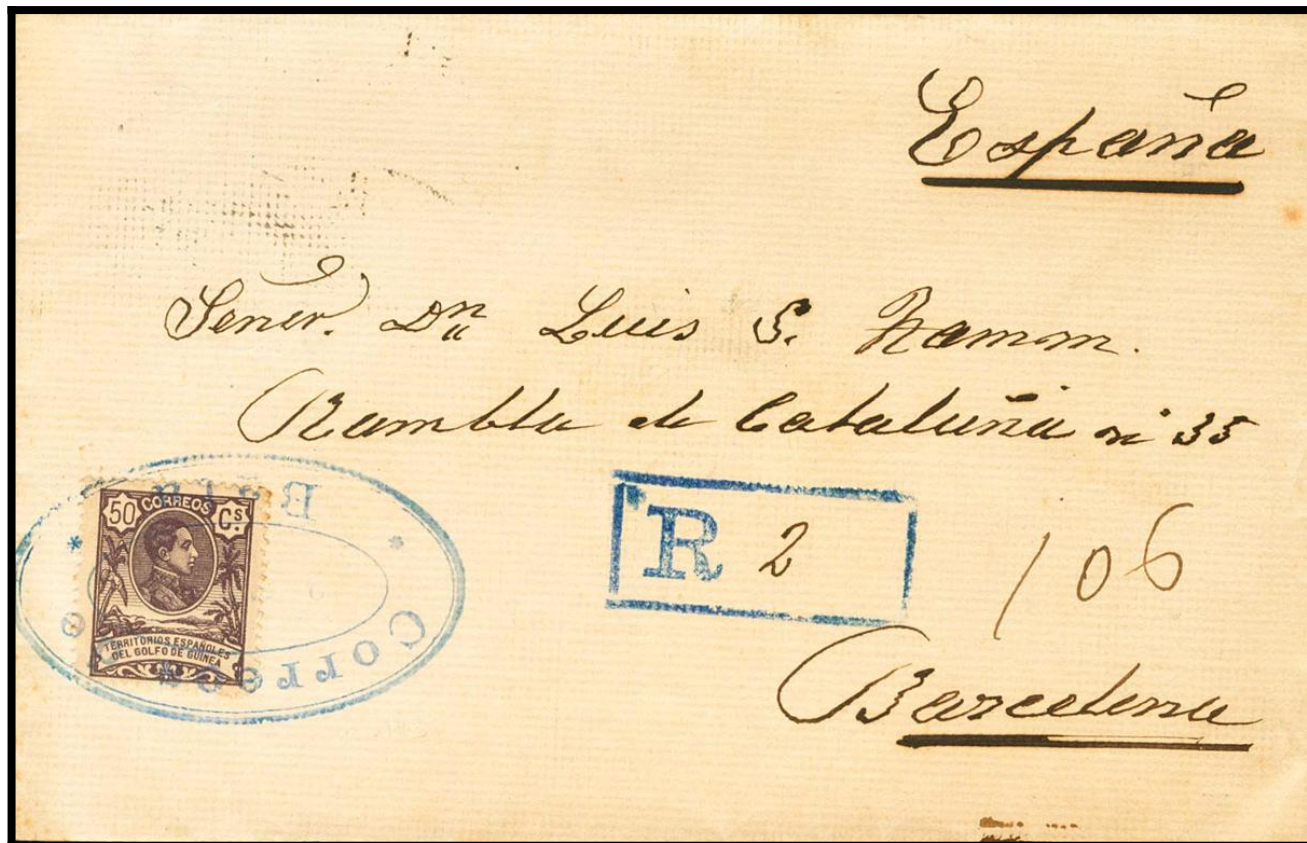 España
Señor. Dn Luis S. Hamm.
Rambla de Cataluña nº 35
50 CORREOS Cs.
TERRITORIOS ESPAÑOLES
DEL GOLFO DE GUINEA
Correos
R 2
106
Barcelona